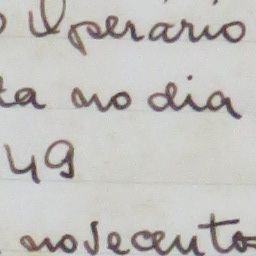 o Operário
ta no dia
49
novecentos